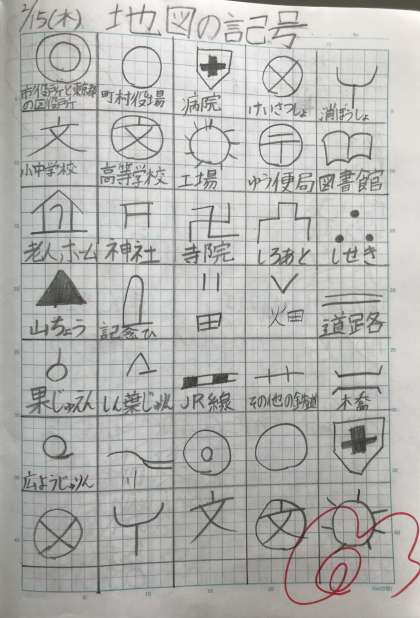 2/15(木) 地図の記号
市役所と東京都の区役所 町村役場 病院 けいさつしょ 消ぼうしょ
小中学校 高等学校 工場 ゆう便局 図書館
老人ホーム 神社 寺院 しろあと しせき
山ちょう 記念ひ 田 火田 道足各
果じゅえん しん葉じゅりん JR線 その他の鉄道 木喬
広ようじゅりん 川